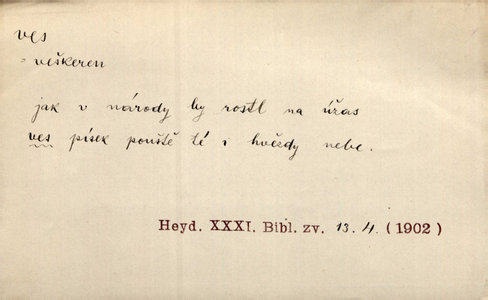 ves
= veškeren
jak v národy by rostl na úžas
ves písek pouště té i hvězdy nebe.
Heyd. XXXI. Bibl. zv. 13.4. (1902)